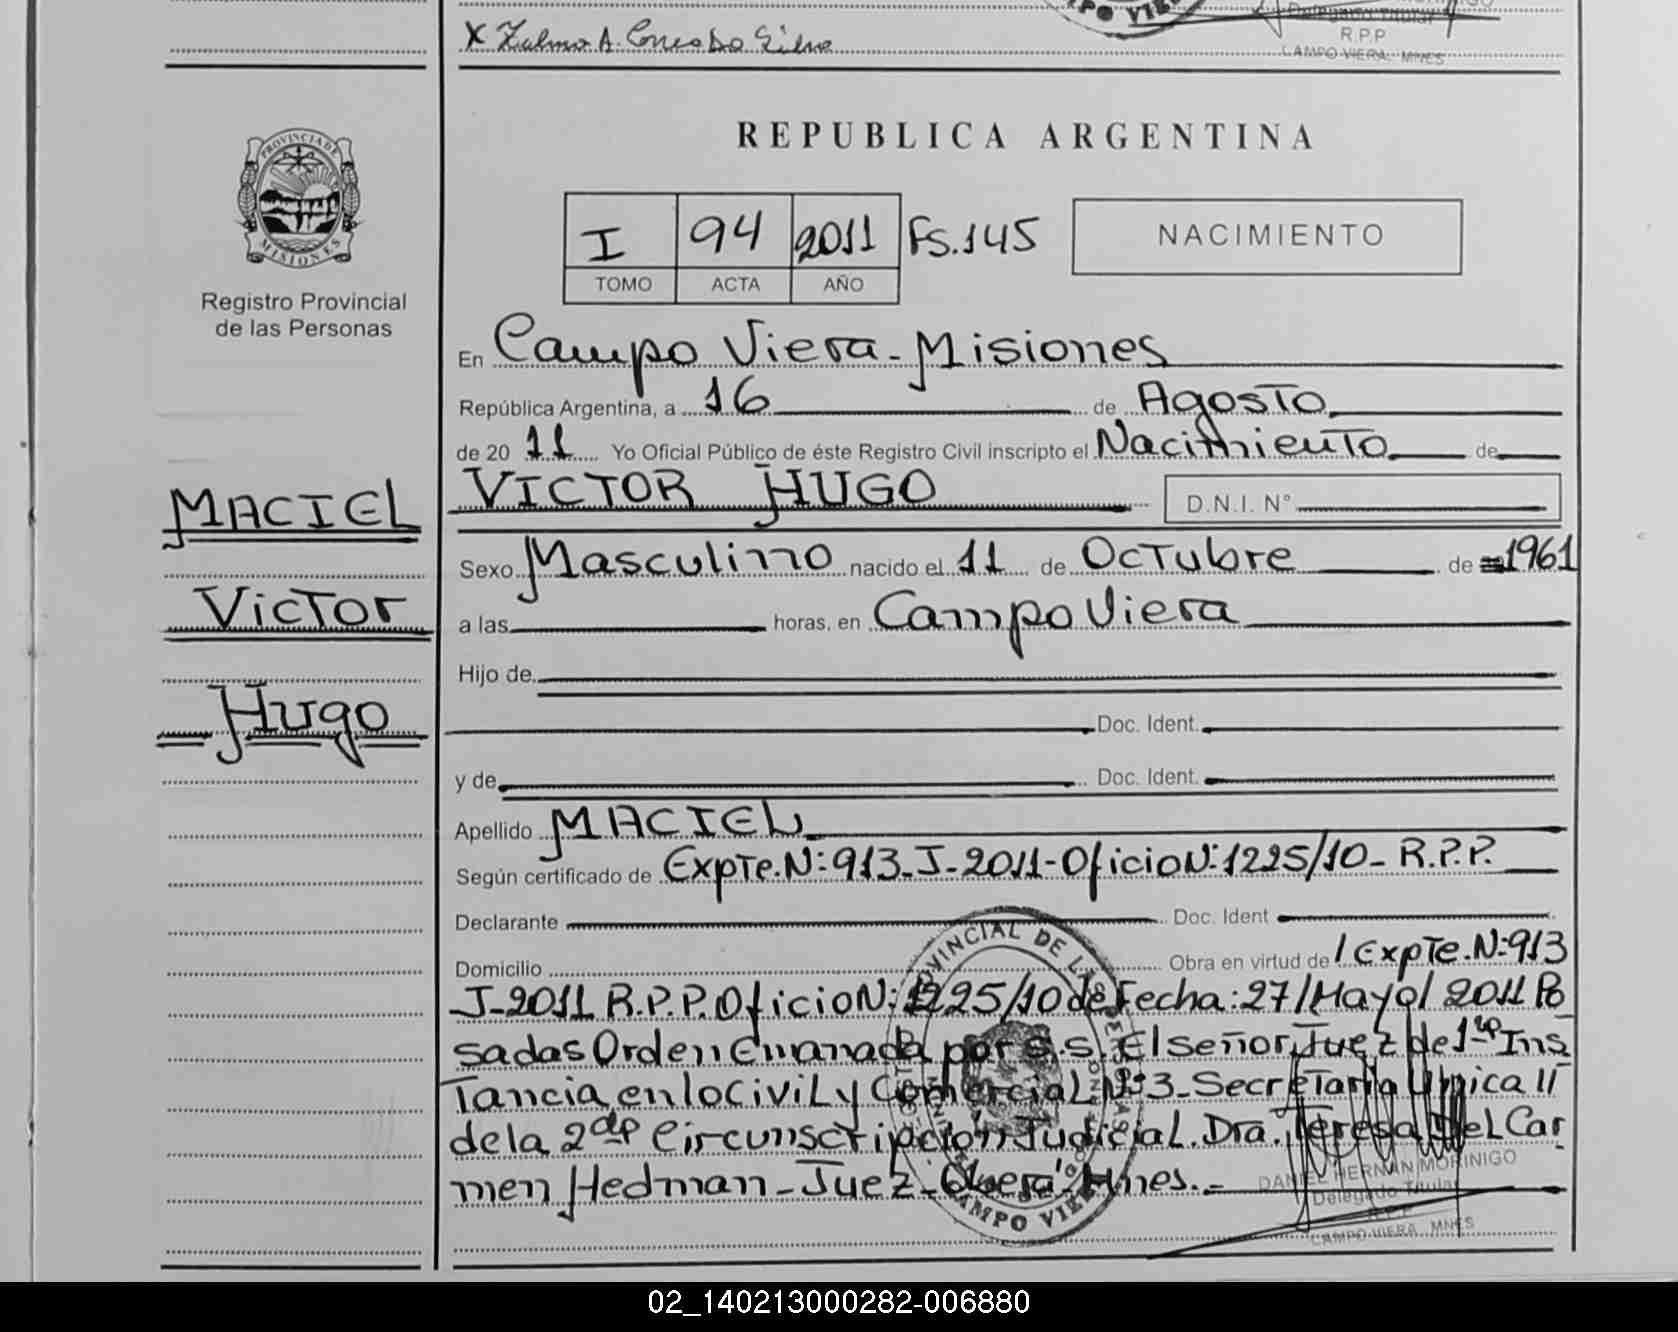 X Zulma A.
R.P.P
CAMPO VIERA. MNES
REPUBLICA ARGENTINA
PROVINCIA DE MISIONES
Registro Provincial
de las Personas
I 94 2011 Fs.145
TOMO ACTA AÑO
NACIMIENTO
En Campo Viera - Misiones
República Argentina, a 16 de Agosto
de 20 11 Yo Oficial Público de éste Registro Civil inscripto el Nacimiento de
VICTOR HUGO D.N.I. N°
MACIEL
Victor
Hugo
Sexo Masculino nacido el 11 de Octubre de 1961
a las horas, en Campo Viera
Hijo de
Doc. Ident.
y de Doc. Ident.
Apellido MACIEL
Según certificado de Expte.N:913-J-2011-Oficio N:1225/10-R.P.P.
Declarante Doc. Ident
Domicilio Obra en virtud de / Expte.N:913
J-2011 R.P.P. Oficio N:1225/10 de Fecha:27/Mayo/2011 Po
sadas Orden Emanada por S.S. El señor Juez de 1ra Ins
tancia en lo Civil y Comercial N:3-Secretaria Unica II
de la 2da Circunscripcion Judicial. Dra. Teresa Del Car
men Hedman-Juez-Obera Mnes.-
DANIEL HERNAN MORINIGO
Delegado Titular
R.P.P
CAMPO VIERA MNES
02_140213000282-006880